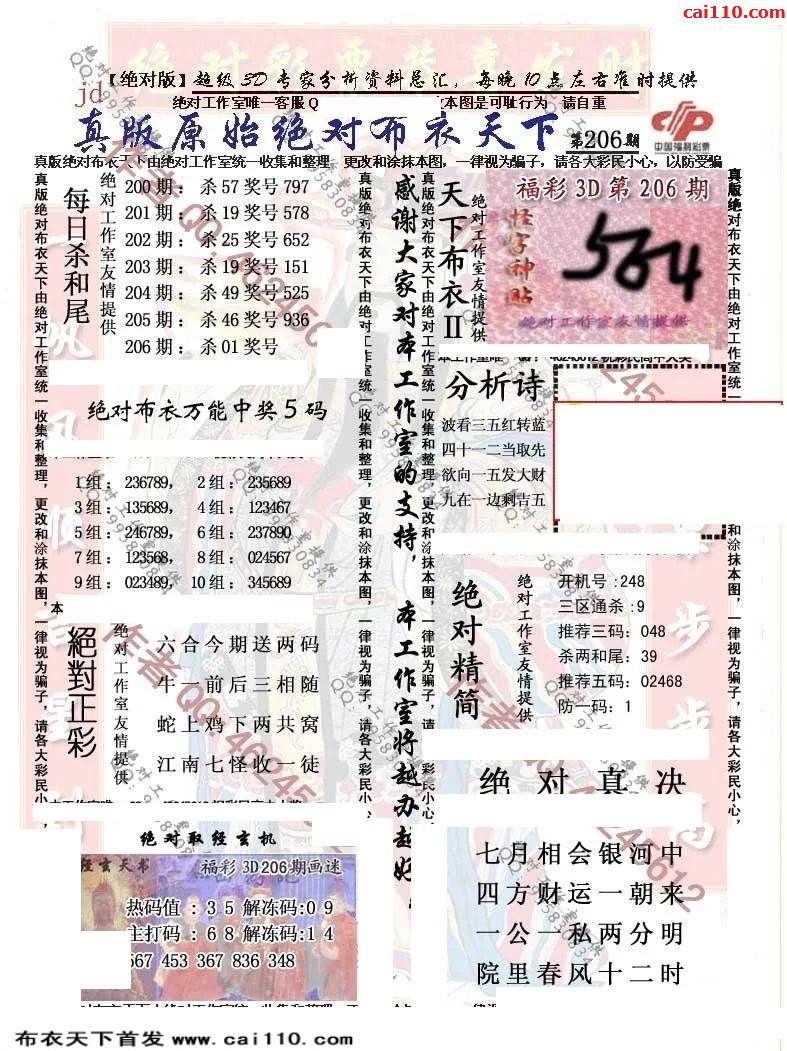 cai110.com
绝对彩票恭喜发财
【绝对版】超级3D专家分析资料总汇，每晚10点左右准时提供
jd
绝对工作室唯一客服Q 本图是可耻行为 请自重
真版原始绝对布衣天下 第206期
中国福利彩票
真版绝对布衣天下由绝对工作室统一收集和整理，更改和涂抹本图，一律视为骗子，请各大彩民小心，以防受骗
真版绝对布衣天下由绝对工作室统一收集和整理，更改和涂抹本图，一律视为骗子，请各大彩民小心，
每日杀和尾
绝对工作室友情提供
200期：杀57奖号797
201期：杀19奖号578
202期：杀25奖号652
203期：杀19奖号151
204期：杀49奖号525
205期：杀46奖号936
206期：杀01奖号
绝对布衣万能中奖5码
1组：236789， 2组：235689
3组：135689， 4组：123467
5组：246789， 6组：237890
7组：123568， 8组：024567
9组：023489， 10组：345689
本
絕對正彩
绝对工作室友情提供
六合今期送两码
牛一前后三相随
蛇上鸡下两共窝
江南七怪收一徒
绝对取经玄机
经玄天书 福彩3D206期画迷
热码值：35解冻码:09
主打码：68解冻码:14
567 453 367 836 348
真版绝对布衣天下由绝对工作室统一收集和整理，更改和涂抹本图，一律视为骗子，请各大彩民小心，
感谢大家对本工作室的支持，本工作室将越办越好
真版绝对布衣天下由绝对工作室统一收集和整理，更改和涂抹本图，一律视为骗子，请
天下布衣II
绝对工作室友情提供
福彩3D第206期
怪字神贴
504
绝对工作室友情提供
分析诗
波看三五红转蓝
四十一二当取先
欲向一五发大财
九在一边剩吉五
绝对精简
绝对工作室友情提供
开机号:248
三区通杀:9
推荐三码：048
杀两和尾：39
推荐五码：02468
防一码：1
绝对真决
七月相会银河中
四方财运一朝来
一公一私两分明
院里春风十二时
真版绝对布衣天下由绝对工作室统一
和涂抹本图，一律视为骗子，请各大彩民小心，
布衣天下首发 www.cai110.com